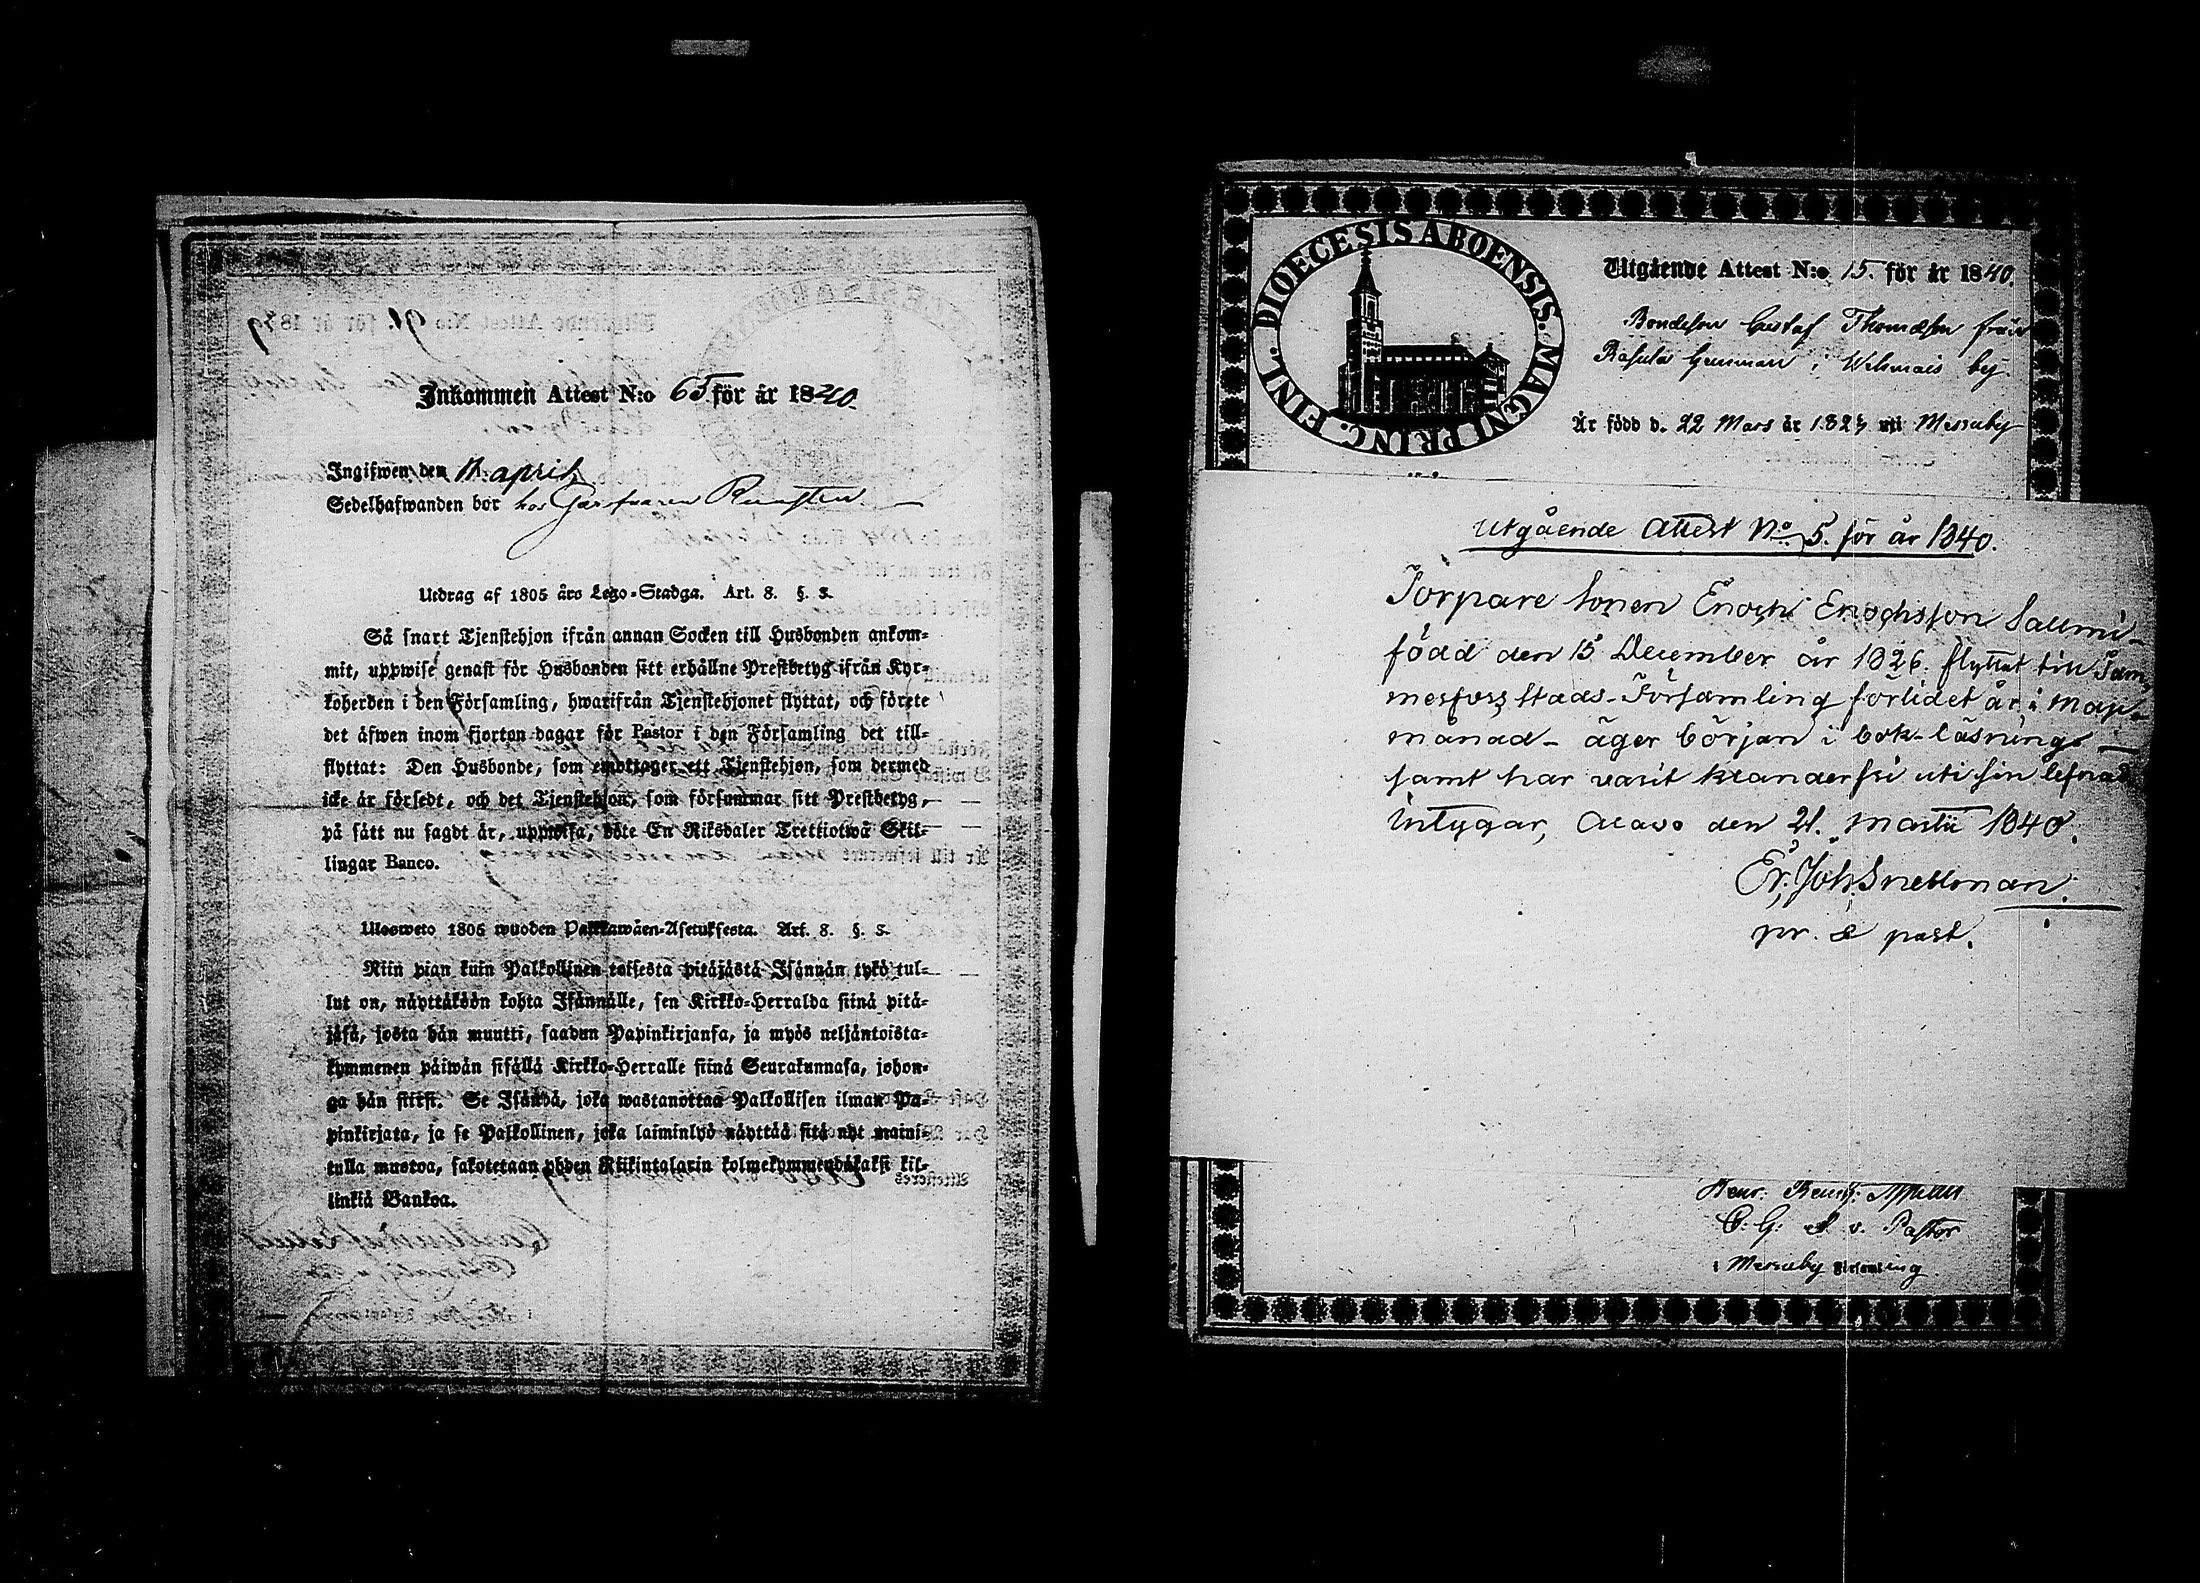 Inkommen Attest N:o 65 för år 1840.
Ingifwen den 11 april
Sedelhafwanden bor hos Garfvaren
Utdrag af 1805 års Lego-Stadga. Art. 8. §. 3.
Så snart Tjenstehjon ifrån annan Socken till Husbonden ankom-
mit, uppwise genast för Husbonden sitt erhållne Prestbetyg ifrån Kyr-
koherden i den Församling, hwarifrån Tjenstehjonet flyttat, och förete
det äfwen inom fjorton dagar för Pastor i den Församling det till-
flyttat: Den Husbonde, som emottager ett Tjenstehjon, som dermed
icke är försedt, och det Tjenstehjon, som försummar sitt Prestbetyg,
på sätt nu sagdt är, uppwisa, böte En Riksdaler Trettiotwå Skil-
lingar Banco.
Ulosweto 1805 wuoden Palkkawäen-Asetuksesta. Art. 8. §. 3.
Niin pian kuin Palkollinen toisesta pitäjästä Isännän tykö tul-
lut on, näyttäköön kohta Isännälle, sen Kirkko-Herralda siinä pitä-
jäsä, josta hän muutti, saadun Papinkirjansa, ja myös neljäntoista-
kymmenen päiwän sisällä Kirkko-Herralle siinä Seurakunnasa, johon-
ga hän siirsi. Se Isändä, joka wastanottaa Palkollisen ilman Pa-
pinkirjata, ja se Palkollinen, joka laiminlyö näyttää sitä nyt maini-
tulla muotoa, sakotetaan yhden Riikintalarin kolmekymmendäkaksi kil-
linkiä Bankoa.
DIOECESIS ABOENSIS. MAGNI PRINC. FINL.
Utgående Attest N:o 15. för år 1840.
Bondeson Gustaf Thomasson från
Gunnari i Wehmais by.
Är född d. 22 Mars år 1823 uti Messuby
Utgående Attest No. 5. för år 1840.
Torpare sonen Enoch Enochsson Sallmi-
född den 15 December år 1826. flyttat till Tam-
merfors Stads-Församling förlidet år i Maji-
månad - äger början i bok-läsning -
samt har varit klanderfri uti sin lefnad
intygar, Alavo den 21. Martii 1840.
Er. Joh. Snellman.
pr. & past.
Henr.
C. G. & v. Pastor
i Messuby Församling